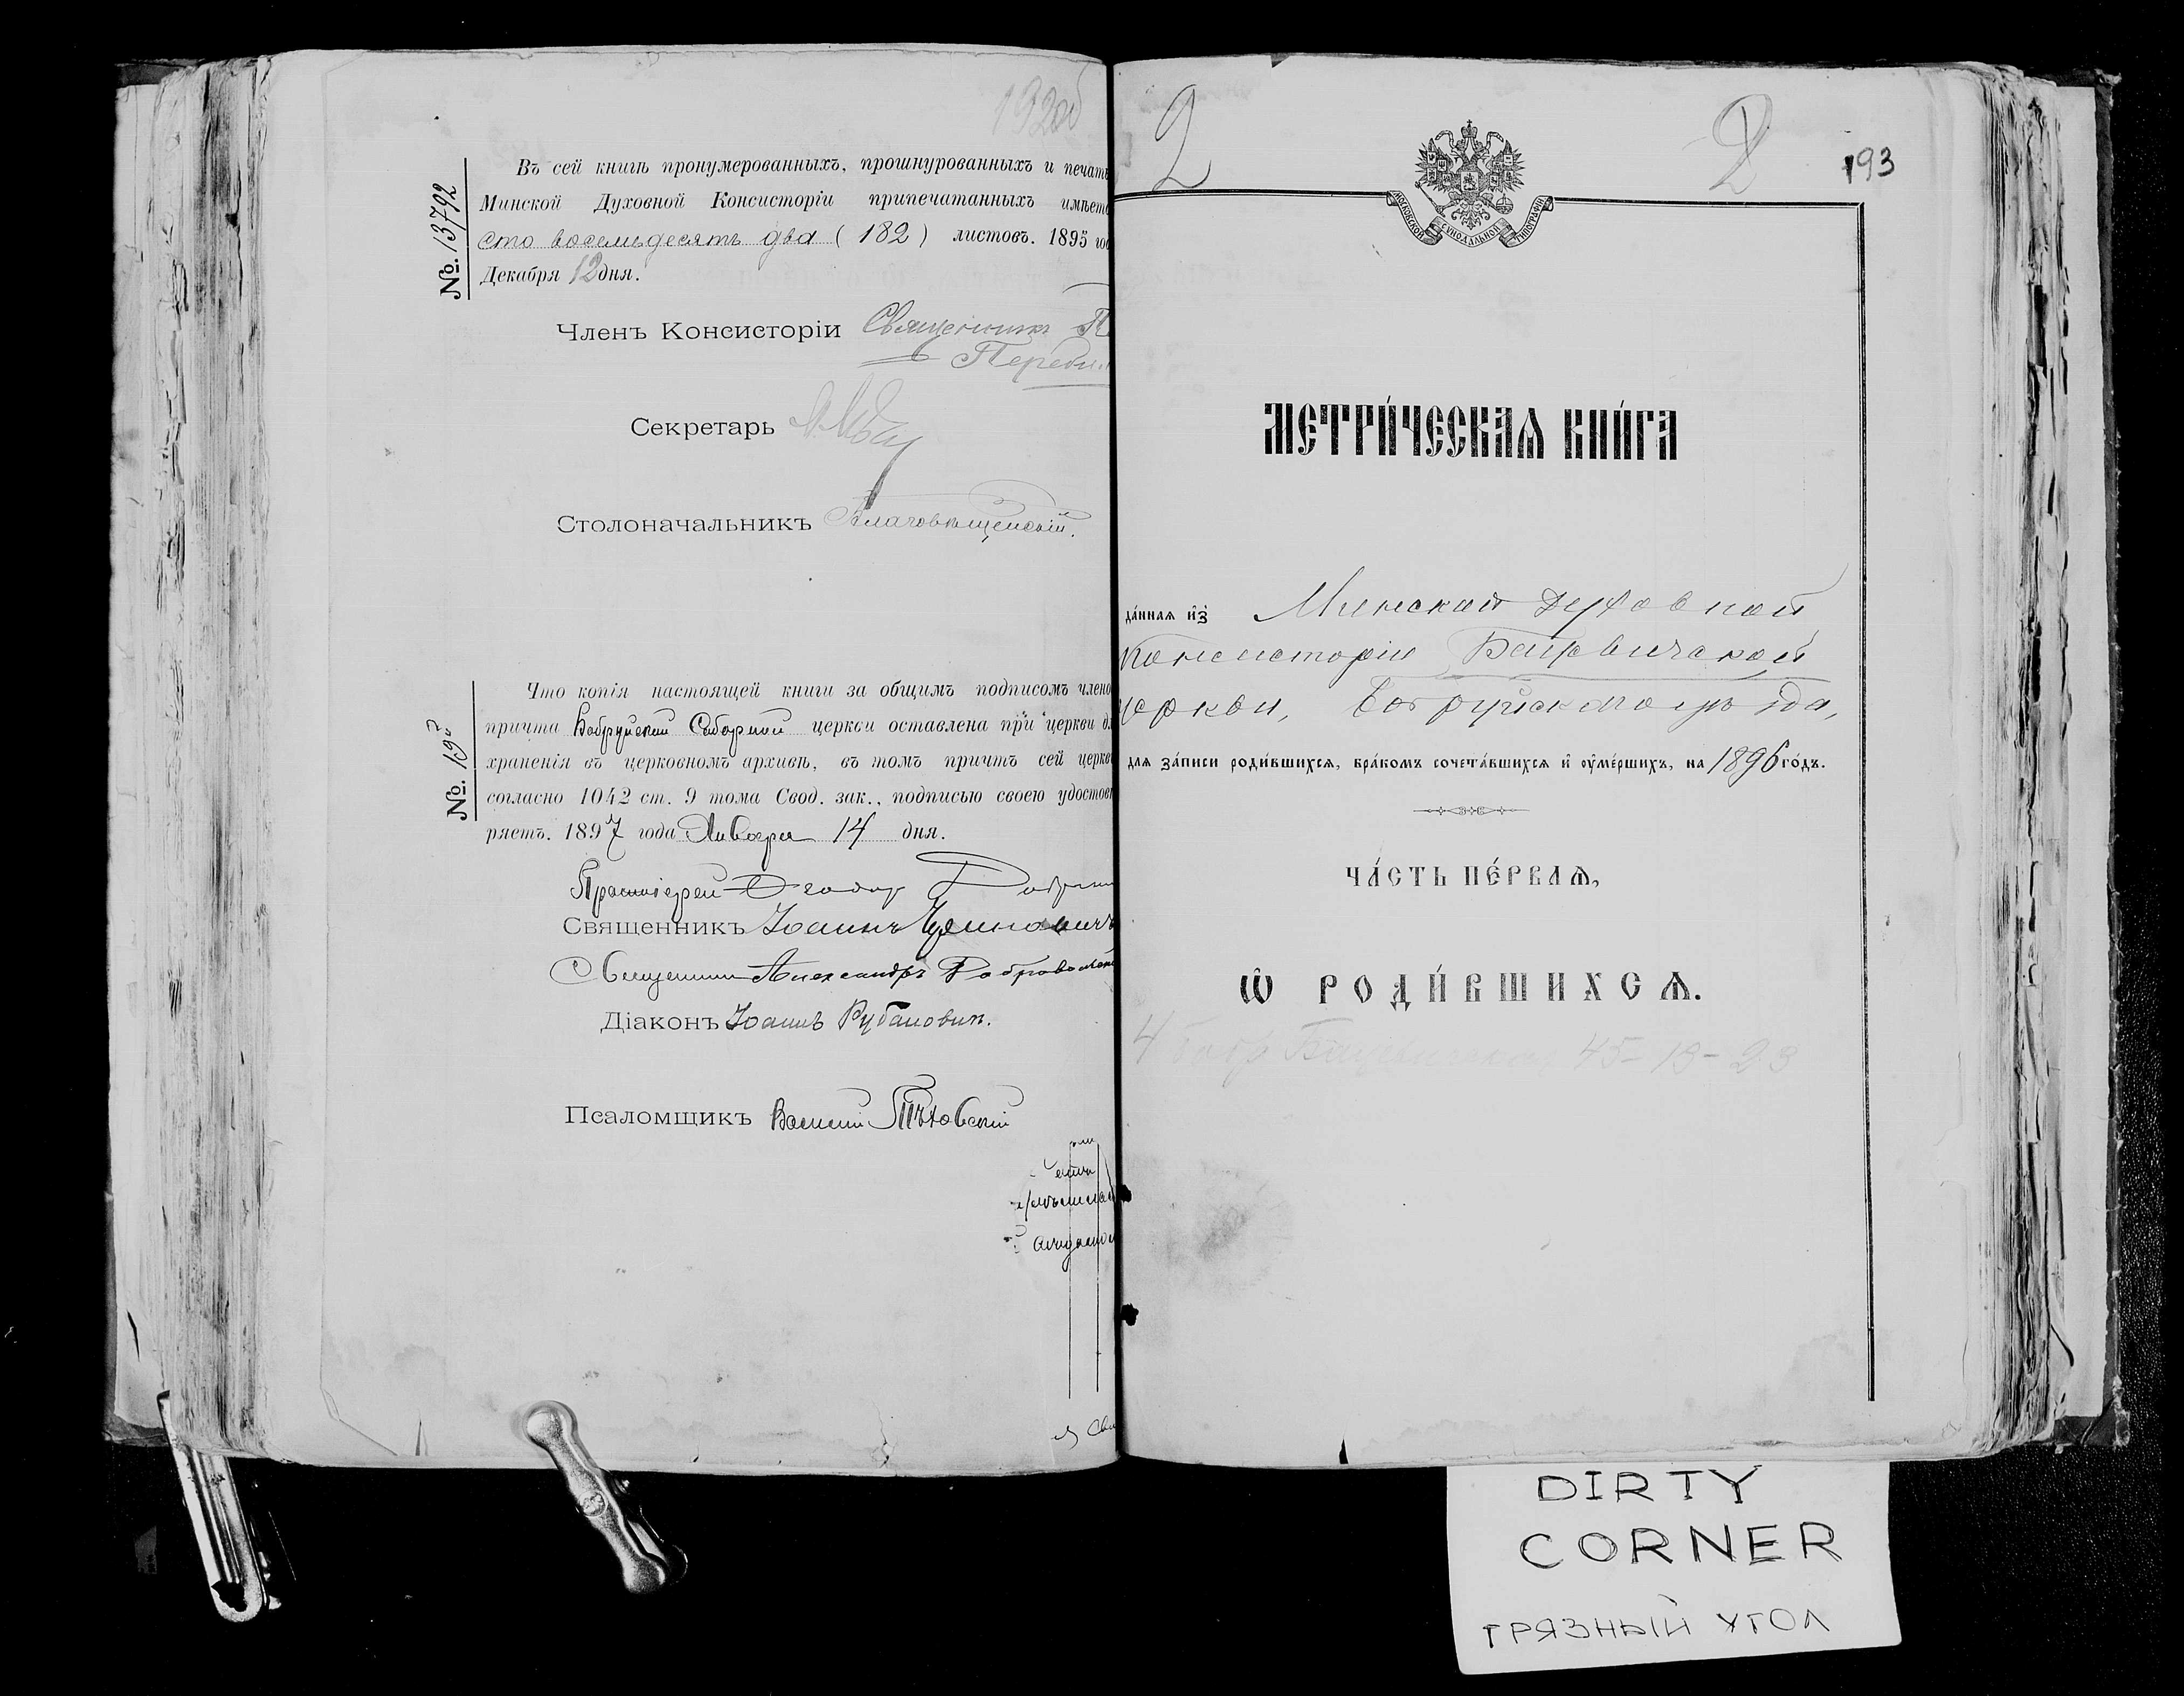 192об
№. 13792
Въ сей книгѣ пронумерованныхъ, прошнурованныхъ и печать
Минской Духовной Консисторіи припечатанныхъ имѣетс
сто восемьдесятъ два ( 182 ) листовъ. 1895 го
Декабря 12 дня.
Членъ Консисторіи Священникъ П
Секретарь
Столоначальникъ Благовѣщенскій.
№. 19й
Что копія настоящей книги за общимъ подписомъ члено
причта Бобруйской Соборной церкви оставлена при церкви д
храненія въ церковномъ архивѣ, въ томъ причтъ сей церкв
согласно 1042 ст. 9 тома Свод. зак., подписью своею удостов
ряетъ. 1897 года Января 14 дня.
Протоіерей
Священникъ Іоаннъ
Священникъ Александръ
Діаконъ Іоаннъ Рубановичъ.
Псаломщикъ Василій
2
2
193
МОСКОВСКОЙ СѴНОДАЛЬНОЙ ТИПОГРАФІИ
МЕТРИ́ЧЕСКАѦ КНИ́ГА
да́ннаѧ и҆з̾ Минской Духовной
Консисторіи Бацевичской
церкви, Бобруйскаго уѣзда,
для за́писи роди́вшихсѧ, бра́комъ сочета́вшихсѧ и҆ ᲂу҆ме́ршихъ, на 1896 го́дъ.
ЧА́СТЬ ПЕ́РВАѦ,
Ѽ РОДИ́ВШИХСѦ.
45-19-23
DIRTY
CORNER
ГРЯЗНЫЙ УГОЛ